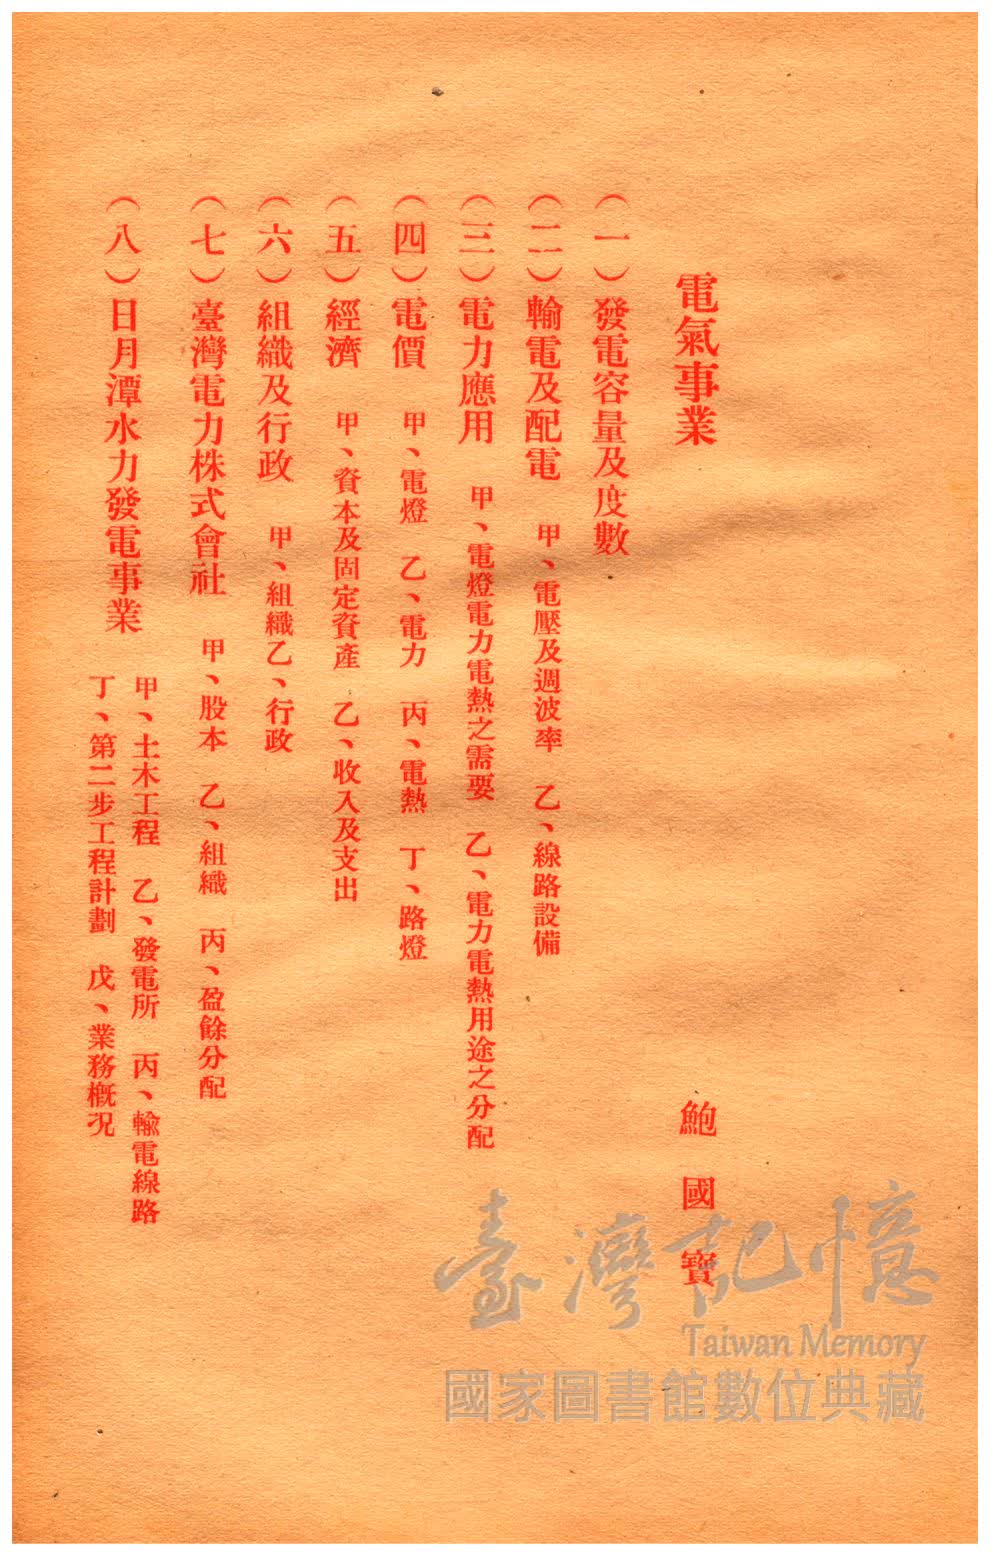 電氣事業
鮑國寶
（一）發電容量及度數
（二）輸電及配電　甲、電壓及週波率　乙、線路設備
（三）電力應用　甲、電燈電力電熱之需要　乙、電力電熱用途之分配
（四）電價　甲、電燈　乙、電力　丙、電熱　丁、路燈
（五）經濟　甲、資本及固定資產　乙、收入及支出
（六）組織及行政　甲、組織乙、行政
（七）臺灣電力株式會社　甲、股本　乙、組織　丙、盈餘分配
（八）日月潭水力發電事業
甲、土木工程　乙、發電所　丙、輸電線路
丁、第二步工程計劃　戊、業務概況
臺灣記憶
Taiwan Memory
國家圖書館數位典藏